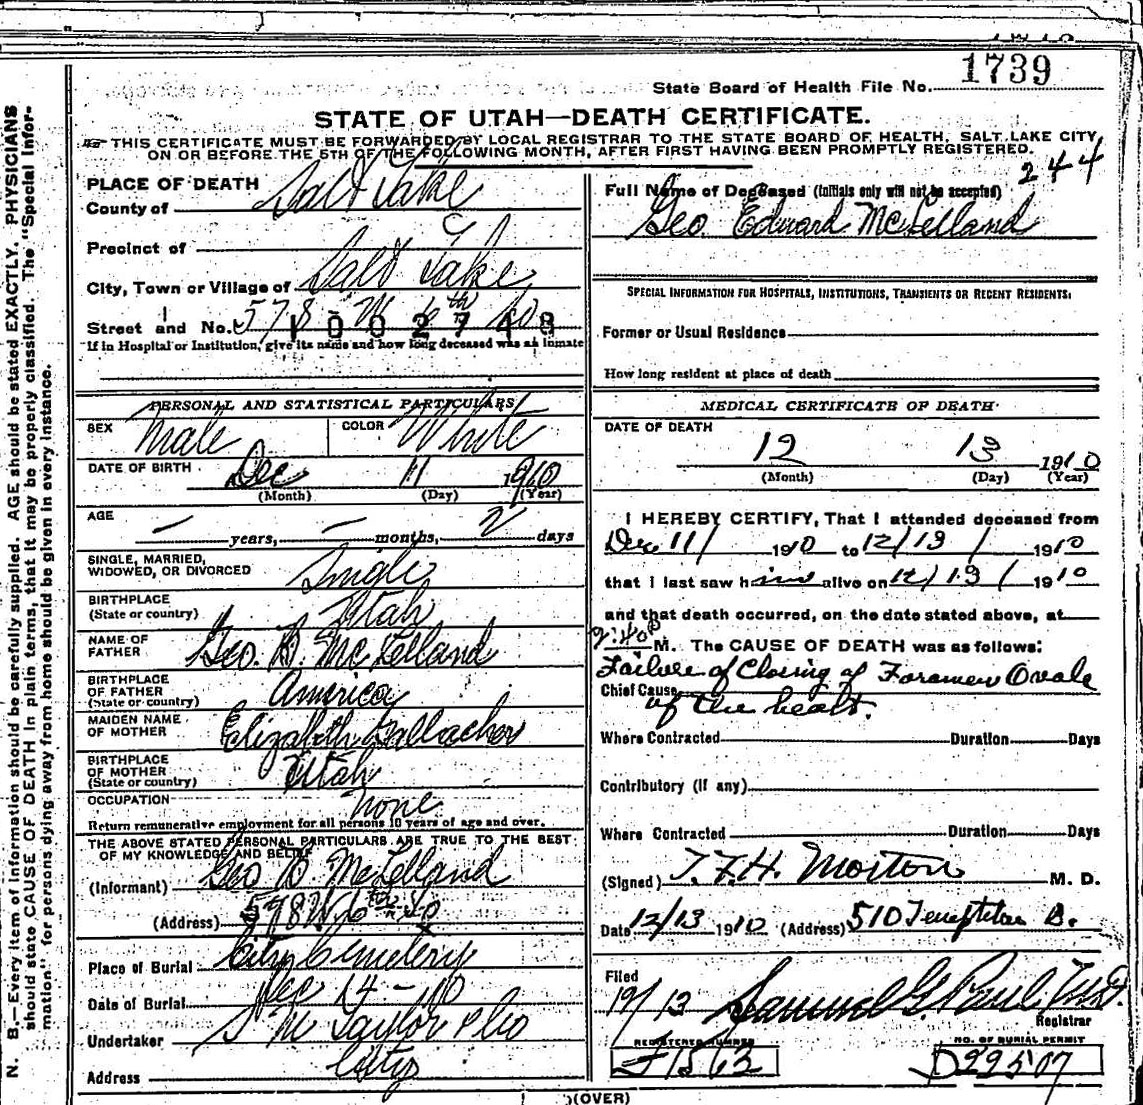 1739
State Board of Health File No.
STATE OF UTAH—DEATH CERTIFICATE.
THIS CERTIFICATE MUST BE FORWARDED BY LOCAL REGISTRAR TO THE STATE BOARD OF HEALTH, SALT LAKE CITY,
ON OR BEFORE THE 5TH OF THE FOLLOWING MONTH, AFTER FIRST HAVING BEEN PROMPTLY REGISTERED.
244
PLACE OF DEATH
County of Salt Lake
Precinct of
City, Town or Village of Salt Lake
Street and No. 578 W 6th So
1002748
If in Hospital or Institution, give its name and how long deceased was an inmate
PERSONAL AND STATISTICAL PARTICULARS
SEX Male COLOR White
DATE OF BIRTH Dec 11 1910
(Month) (Day) (Year)
AGE — years, — months, 2 days
SINGLE, MARRIED,
WIDOWED, OR DIVORCED Single
BIRTHPLACE
(State or country) Utah
NAME OF
FATHER Geo. B. McLelland
BIRTHPLACE
OF FATHER
(State or country) America
MAIDEN NAME
OF MOTHER Elizabeth Gallacher
BIRTHPLACE
OF MOTHER
(State or country) Utah
OCCUPATION None
Return remunerative employment for all persons 10 years of age and over.
THE ABOVE STATED PERSONAL PARTICULARS ARE TRUE TO THE BEST
OF MY KNOWLEDGE AND BELIEF
(Informant) Geo B. McLelland
(Address) 578 W 6th So
Place of Burial City Cemetery
Date of Burial Dec 14-10
Undertaker S M Taylor & Co
Address City
Full Name of Deceased (Initials only will not be accepted)
Geo. Edward McLelland
SPECIAL INFORMATION FOR HOSPITALS, INSTITUTIONS, TRANSIENTS OR RECENT RESIDENTS:
Former or Usual Residence
How long resident at place of death
MEDICAL CERTIFICATE OF DEATH
DATE OF DEATH
12 13 1910
(Month) (Day) (Year)
I HEREBY CERTIFY, That I attended deceased from
Dec 11/ 1910 to 12/13/ 1910
that I last saw him alive on 12/13/ 1910
and that death occurred, on the date stated above, at
M. The CAUSE OF DEATH was as follows:
Failure of Closing of Foramen Ovale
Chief Cause
of the heart.
Where Contracted Duration Days
Contributory (if any)
Where Contracted Duration Days
(Signed) T.F.H. Morton M. D.
Date 12/13 1910 (Address) 510 Templeton B.
Filed
13 Samuel G Paul, M.D.
Registrar
REGISTERED NUMBER
1562
NO. OF BURIAL PERMIT
D22507
(OVER)
N. B.—Every item of information should be carefully supplied. AGE should be stated EXACTLY. PHYSICIANS
should state CAUSE OF DEATH in plain terms, that it may be properly classified. The "Special Infor-
mation" for persons dying away from home should be given in every instance.